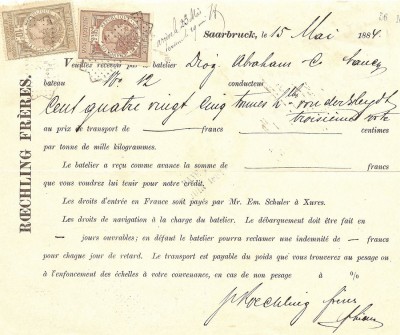 Saarbruck, le 15 Mai 1884
Veuillez recevoir par le batelier Diog Abraham & Co Nancy
bateau No 12 conducteur
Cent quatre vingt cinq tonnes h/le von der Heydt
troisième sorte
au prix de transport de francs centimes
par tonne de mille kilogrammes.
Le batelier a reçu comme avance la somme de francs
que vous voudrez lui tenir pour notre crédit.
Les droits d'entrée en France sont payés par Mr. Em. Schuler à Xures.
Les droits de navigation à la charge du batelier. Le débarquement doit être fait en
— jours ouvrables; en défaut le batelier pourra réclamer une indemnité de — francs
pour chaque jour de retard. Le transport est payable du poids que vous trouverez au pesage ou
à l'enfoncement des échelles à votre convenance, en cas de non pesage à %
RŒCHLING FRÈRES.
p Roechling frères